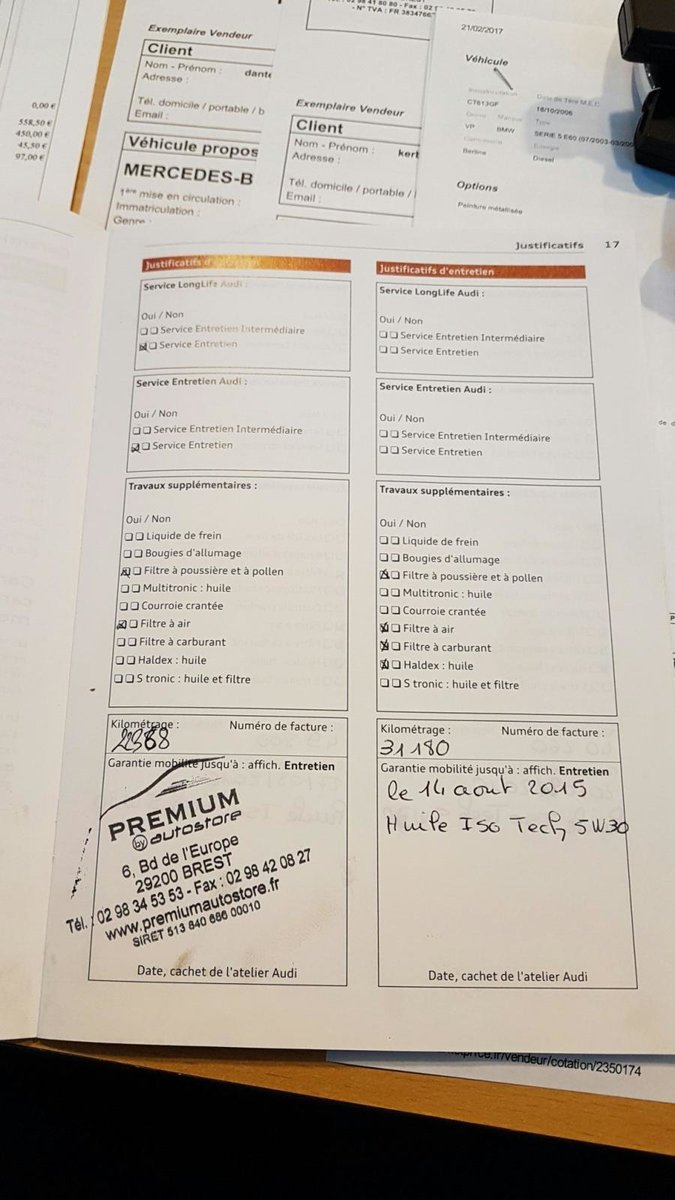 02 98 41 80 80 - Fax : 02
- N° TVA : FR 3834766
0,00 €
558,50 €
450,00 €
45,50 €
97,00 €
Exemplaire Vendeur
Client
Nom - Prénom : dante
Adresse :
Tél. domicile / portable / b
Email :
Véhicule propos
MERCEDES-B
1ère mise en circulation :
Immatriculation :
Genre :
Exemplaire Vendeur
Client
Nom - Prénom : kert
Adresse :
Tél. domicile / portable /
Email :
21/02/2017
Véhicule
Immatriculation Date de 1ère M.E.C.
CT613GF 16/10/2006
Genre Marque Type
VP BMW SERIE 5 E60 (07/2003-03/200
Carrosserie Energie
Berline Diesel
Options
Peinture métallisée
Justificatifs 17
Justificatifs d'entretien
Service LongLife Audi :
Oui / Non
Service Entretien Intermédiaire
Service Entretien
Service Entretien Audi :
Oui / Non
Service Entretien Intermédiaire
Service Entretien
Travaux supplémentaires :
Oui / Non
Liquide de frein
Bougies d'allumage
Filtre à poussière et à pollen
Multitronic : huile
Courroie crantée
Filtre à air
Filtre à carburant
Haldex : huile
S tronic : huile et filtre
Kilométrage : Numéro de facture :
Garantie mobilité jusqu'à : affich. Entretien
PREMIUM
by autostore
6, Bd de l'Europe
29200 BREST
Tél. : 02 98 34 53 53 - Fax : 02 98 42 08 27
www.premiumautostore.fr
SIRET 513 840 686 00010
Date, cachet de l'atelier Audi
Justificatifs d'entretien
Service LongLife Audi :
Oui / Non
Service Entretien Intermédiaire
Service Entretien
Service Entretien Audi :
Oui / Non
Service Entretien Intermédiaire
Service Entretien
Travaux supplémentaires :
Oui / Non
Liquide de frein
Bougies d'allumage
Filtre à poussière et à pollen
Multitronic : huile
Courroie crantée
Filtre à air
Filtre à carburant
Haldex : huile
S tronic : huile et filtre
Kilométrage : Numéro de facture :
31180
Garantie mobilité jusqu'à : affich. Entretien
le 14 aout 2015
Huile ISO Tech 5W30
Date, cachet de l'atelier Audi
price.fr/vendeur/cotation/2350174